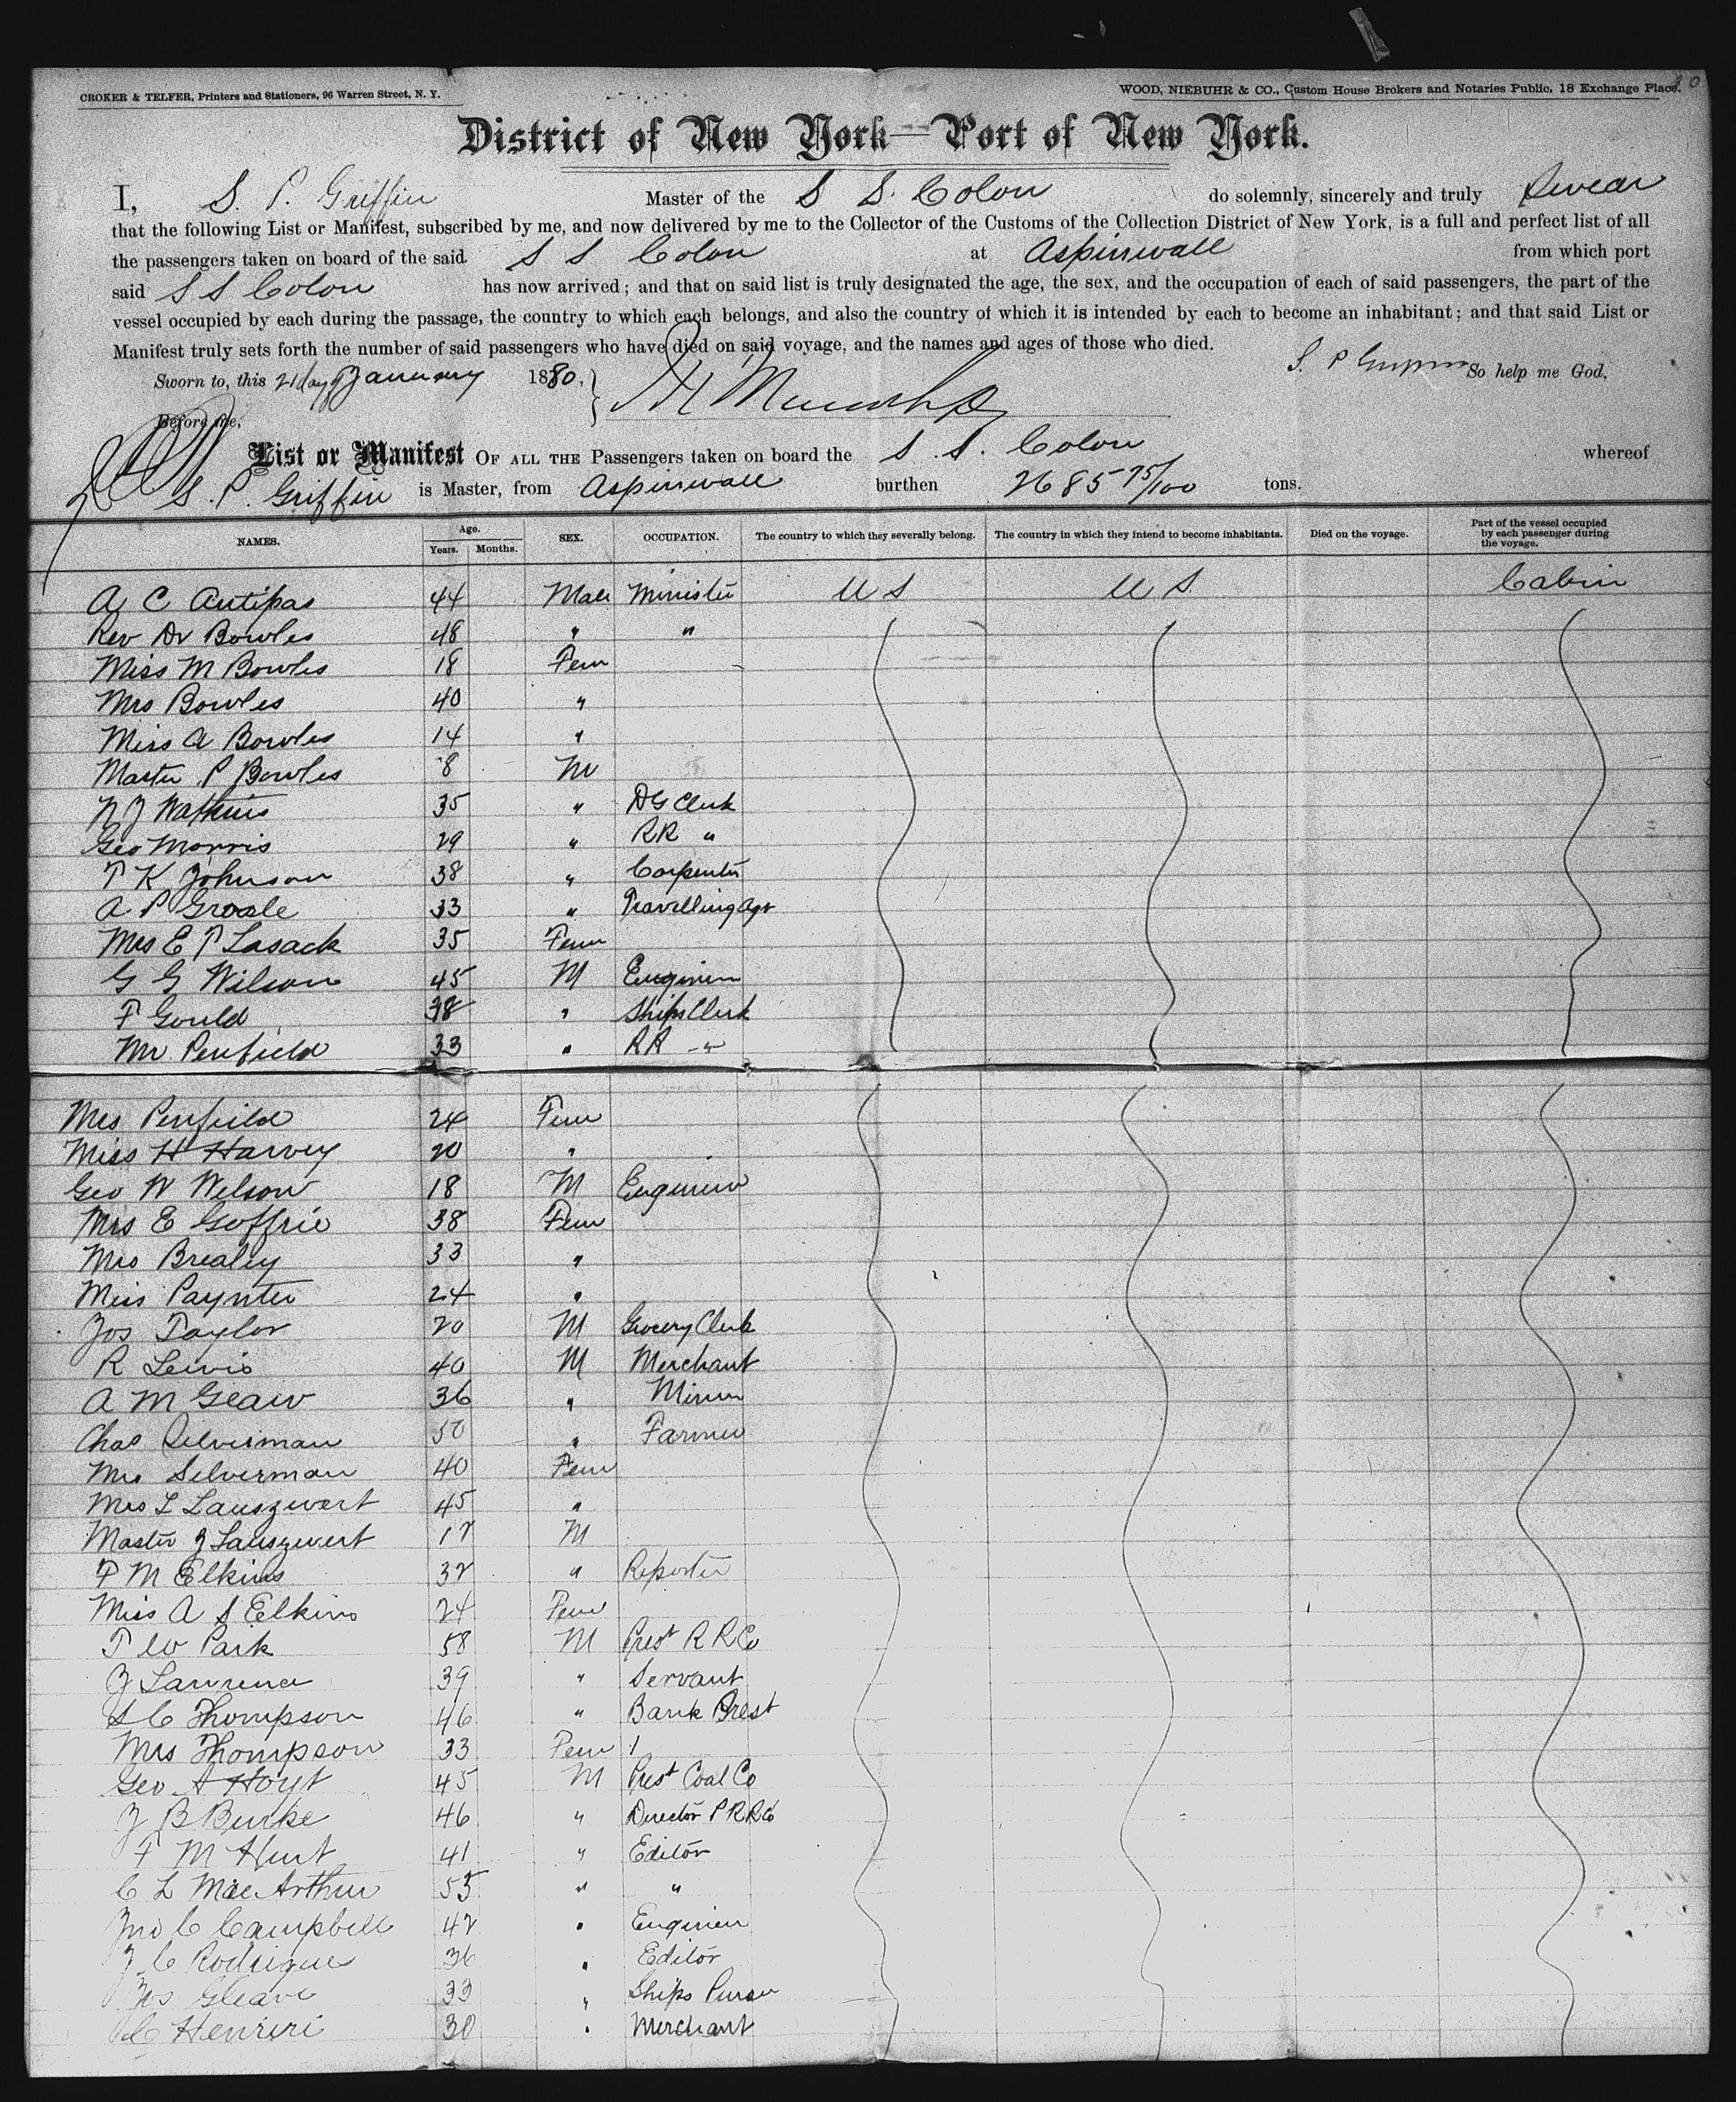 CROKER & TELFER, Printers and Stationers, 96 Warren Street, N. Y.
WOOD, NIEBUHR & CO., Custom House Brokers and Notaries Public, 18 Exchange Place.
District of New York—Port of New York.
I, S. P. Griffin Master of the S S. Colon do solemnly, sincerely and truly swear
that the following List or Manifest, subscribed by me, and now delivered by me to the Collector of the Customs of the Collection District of New York, is a full and perfect list of all
the passengers taken on board of the said S S Colon at Aspinwall from which port
said S S Colon has now arrived; and that on said list is truly designated the age, the sex, and the occupation of each of said passengers, the part of the
vessel occupied by each during the passage, the country to which each belongs, and also the country of which it is intended by each to become an inhabitant; and that said List or
Manifest truly sets forth the number of said passengers who have died on said voyage, and the names and ages of those who died.
Sworn to, this 21 day of January 1880, S. P Griffin So help me God.
Before me,
List or Manifest OF ALL THE Passengers taken on board the S. S. Colon whereof
S. P. Griffin is Master, from Aspinwall burthen 2685 75/100 tons.
NAMES. Age. Years. Months. SEX. OCCUPATION. The country to which they severally belong. The country in which they intend to become inhabitants. Died on the voyage. Part of the vessel occupied by each passenger during the voyage.
A C Antipas 44 Male Minister U S U S Cabin
Rev Dr Bowles 48 " "
Miss M Bowles 18 Fem
Mrs Bowles 40 "
Miss A Bowles 14 "
Master P Bowles 8 M
N J Watkins 35 " D G Clerk
Geo Morris 29 " RR "
T K Johnson 38 " Carpenter
A P Groale 33 " Travelling Agt
Mrs E T Lasack 35 Fem
G G Wilson 45 M Engineer
F Gould 38 " Ships Clerk
Mr Penfield 33 " RR "
Mrs Penfield 24 Fem
Miss H Harvey 20 "
Geo W Wilson 18 M Engineer
Mrs E Goffrie 38 Fem
Mrs Brealey 33 "
Miss Paynter 24 "
Jos Taylor 20 M Grocery Clerk
R Lewis 40 M Merchant
A M Geaiv 36 " Miner
Chas Silverman 50 " Farmer
Mrs Silverman 40 Fem
Mrs L Lauszwert 45 "
Master J Lauszwert 12 M
F M Elkins 32 " Reporter
Miss A S Elkins 24 Fem
T W Park 58 M Prest R R Co
J Lawrence 39 " Servant
S C Thompson 46 " Bank Prest
Mrs Thompson 33 Fem
Geo A Hoyt 45 M Prest Coal Co
J B Burke 46 " Director P R R Co
F M Hurt 41 " Editor
C L MacArthur 55 " "
Jno C Campbell 42 " Engineer
J C Rodrigues 36 " Editor
Jos Gleave 33 " Ships Purser
C Henriri 30 " Merchant